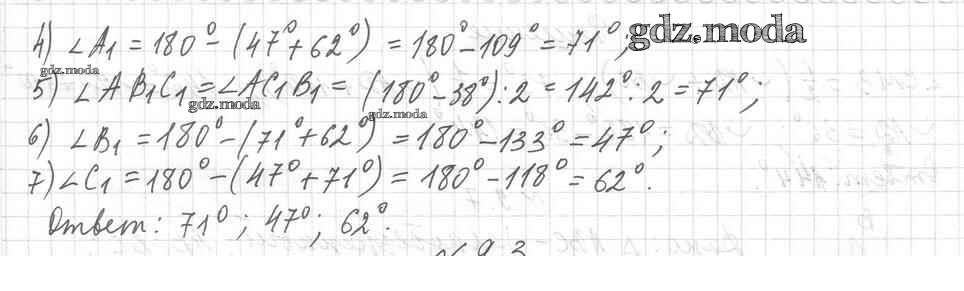 4) ∠A₁ = 180° − (47° + 62°) = 180° − 109° = 71°;
gdz.moda
gdz.moda
5) ∠AB₁C₁ = ∠AC₁B₁ = (180° − 38°) : 2 = 142° : 2 = 71°;
gdz.moda
gdz.moda
6) ∠B₁ = 180° − (71° + 62°) = 180° − 133° = 47°;
7) ∠C₁ = 180° − (47° + 71°) = 180° − 118° = 62°.
Ответ: 71°; 47°; 62°.